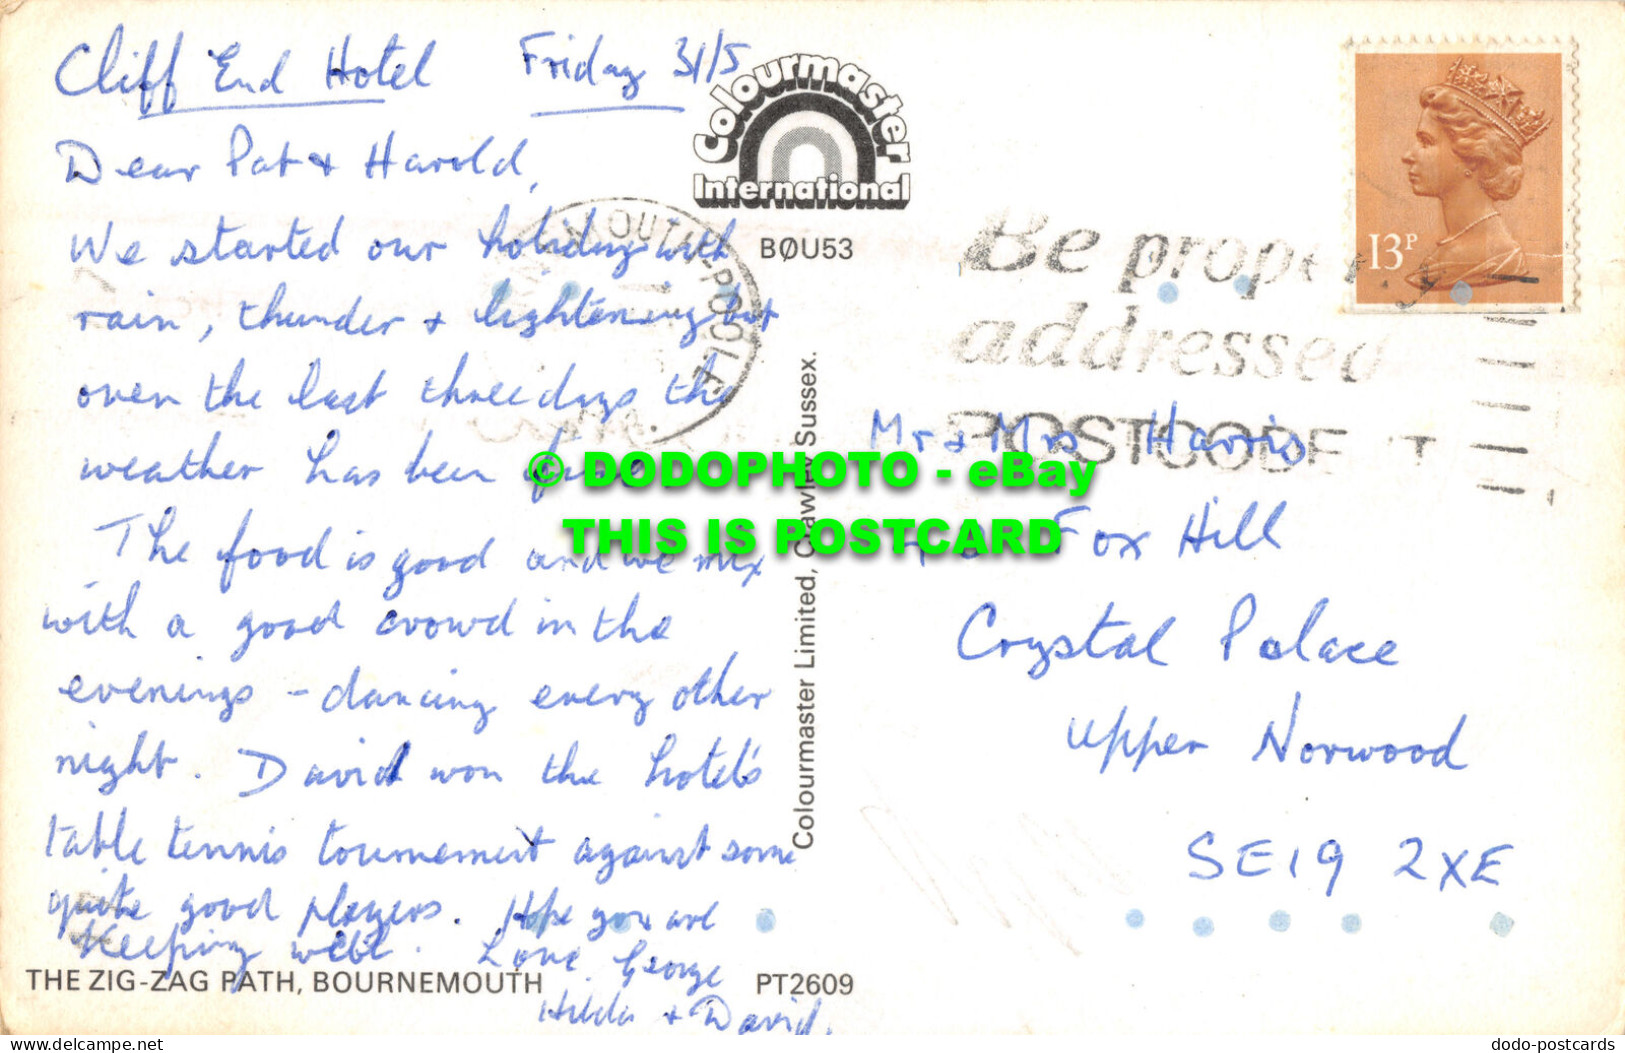 Cliff End Hotel Friday 31/5
Dear Pat & Harold,
We started our holiday with
rain, thunder & lightening but
over the last three days the
weather has been
The food is good and we mix
with a good crowd in the
evenings - dancing every other
night. David won the hotel's
table tennis tournement against some
quite good players. Hope you are
keeping well. Love George
Hilda & David.
THE ZIG-ZAG PATH, BOURNEMOUTH
PT2609
Colourmaster
International
BØU53
Colourmaster Limited, Crawley, Sussex.
13P
Be properly
addressed
POSTCODE IT
Mr & Mrs Harris
Fox Hill
Crystal Palace
Upper Norwood
SE19 2XE
© DODOPHOTO - eBay
THIS IS POSTCARD
delcampe.net
dodo-postcards